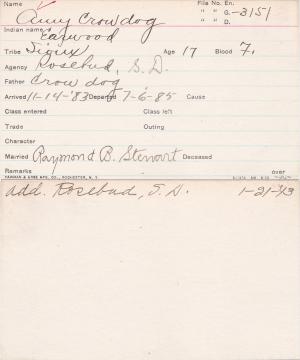 File No. En.
Name Anny Crowdog " " G.-3151
" " D.
Indian name Earwood
Tribe Sioux Age 17 Blood 7.
Agency Rosebud, S. D.
Father Crow dog
Arrived 11-14-'83 Departed 7-6-85 Cause
Class entered Class left
Trade Outing
Character
Married Raymond B. Stewart Deceased
Remarks over
YAWMAN & ERBE MFG. CO., ROCHESTER, N. Y.
add. Rosebud, S. D. 1-21-'13